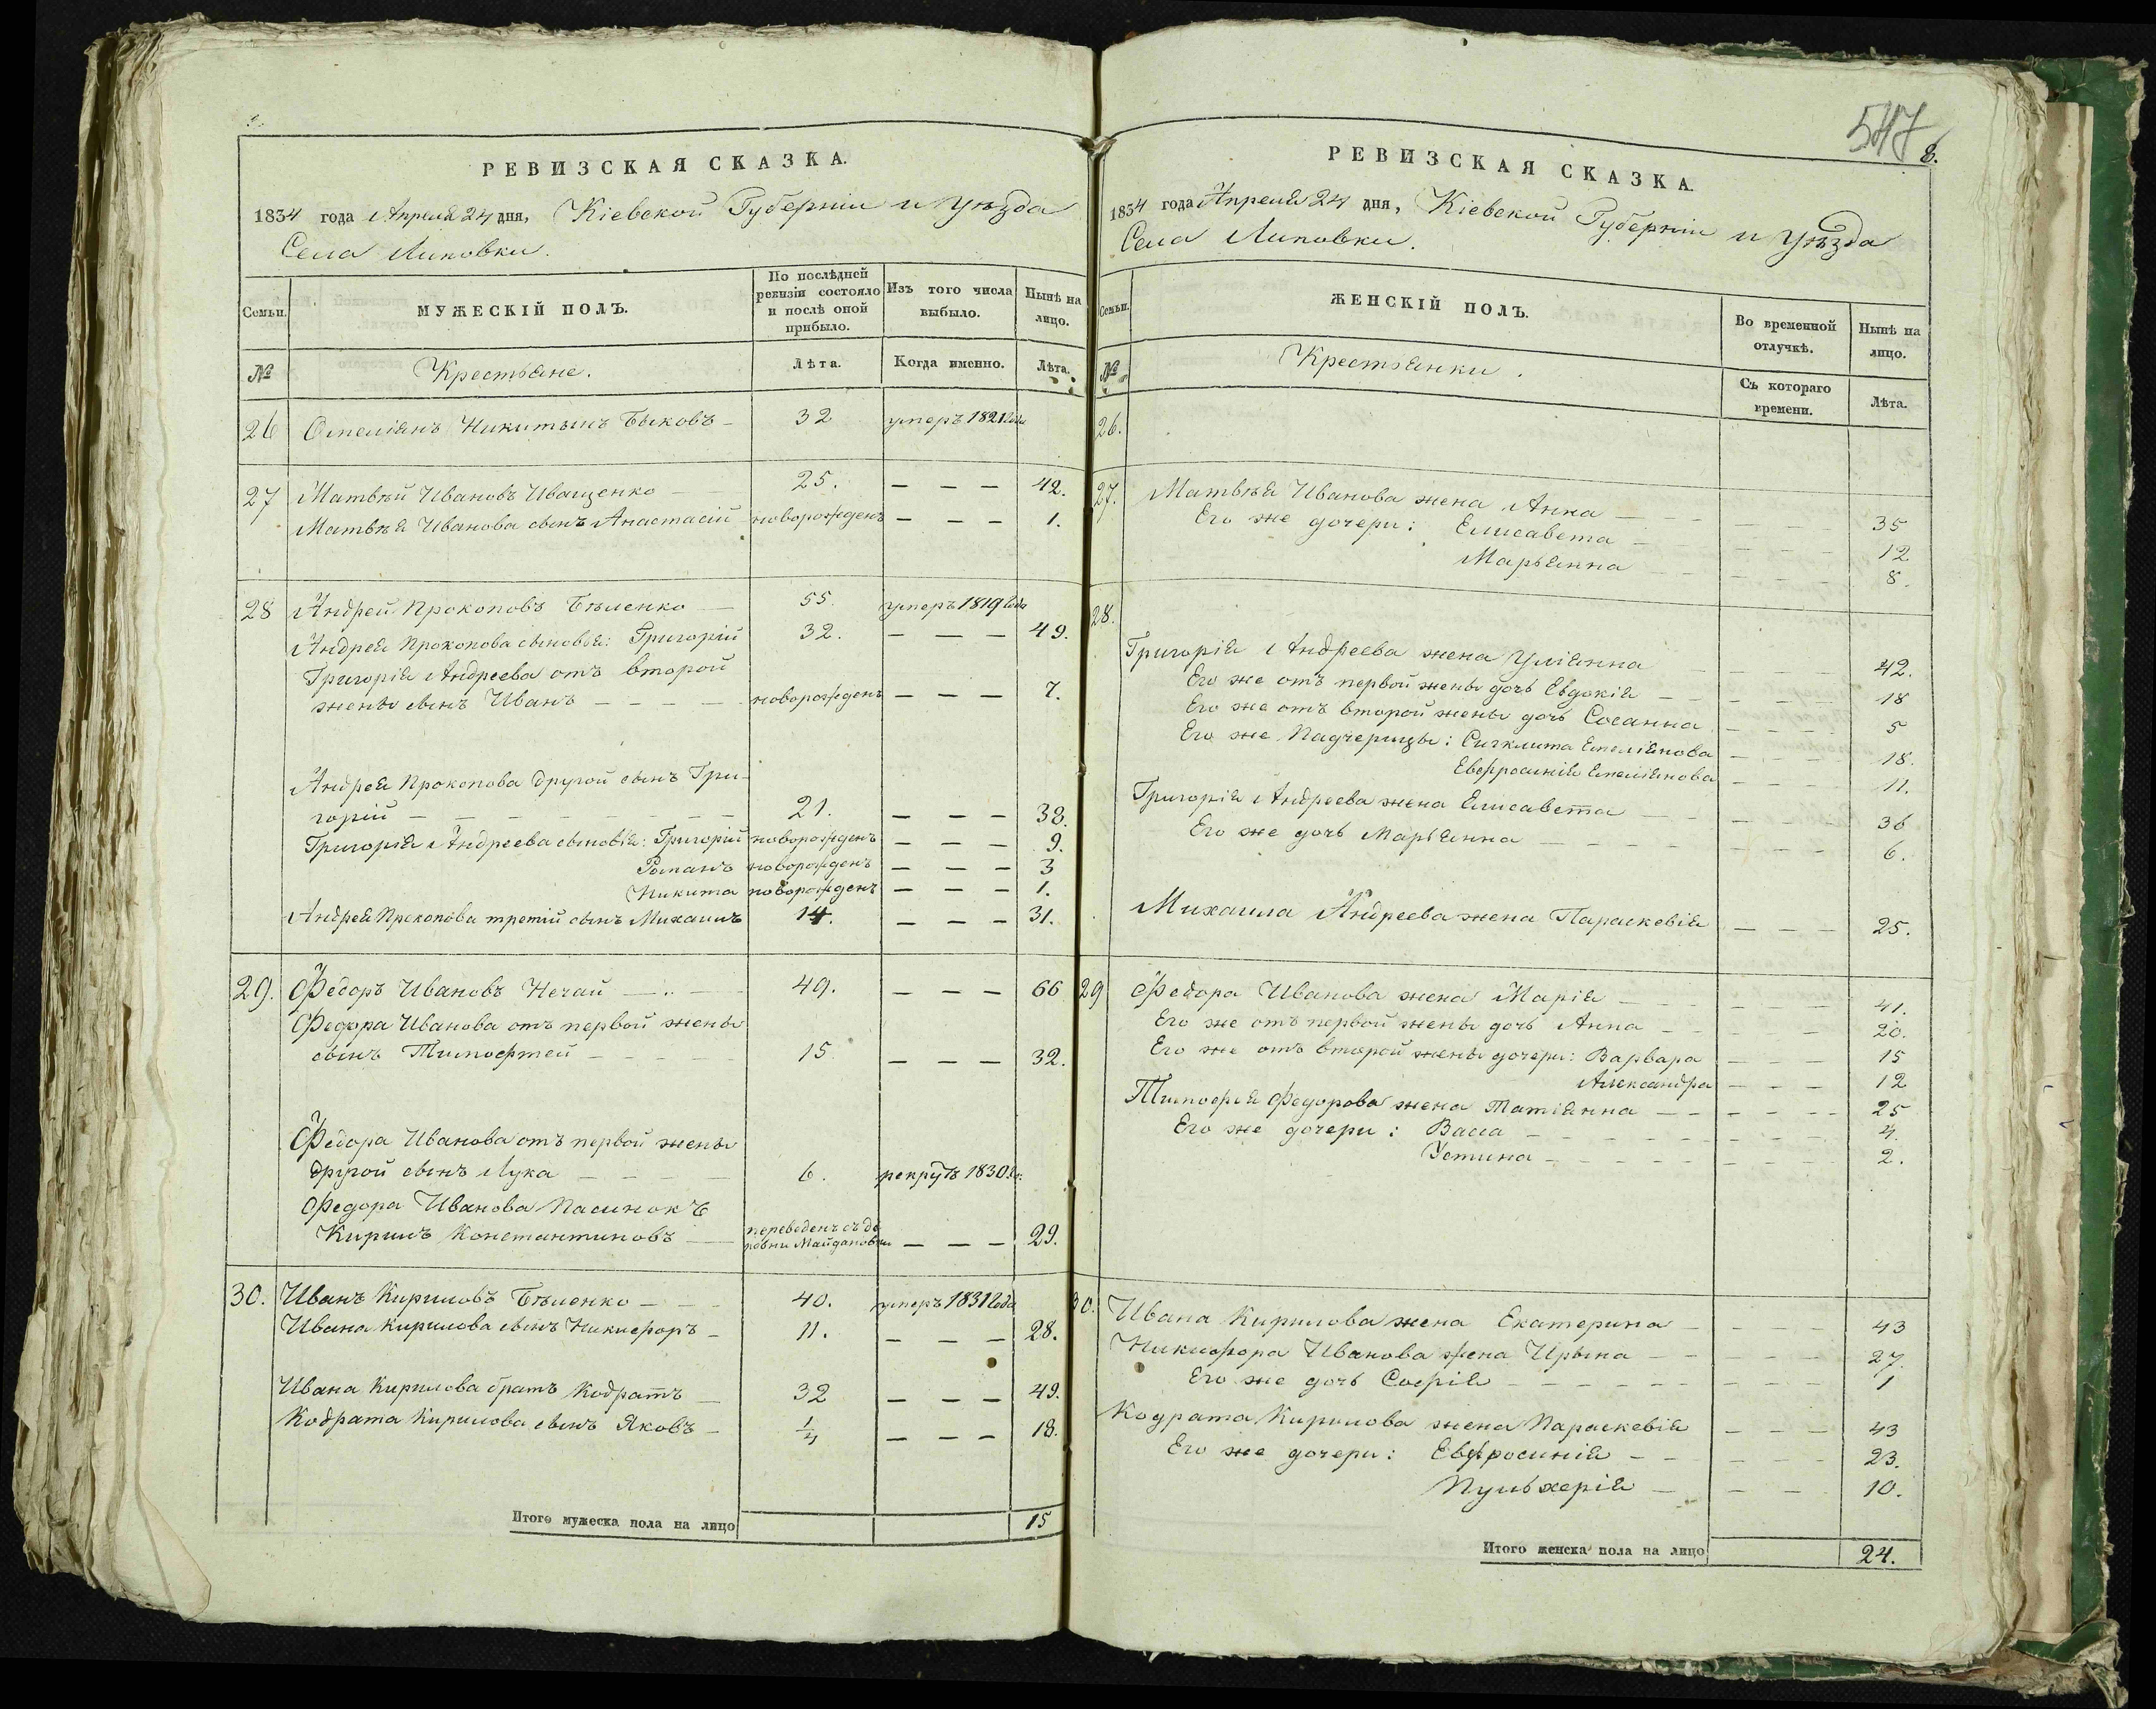 РЕВИЗСКАЯ СКАЗКА.
1834 года Апреля 24 дня, Кіевской Губерніи и Уѣзда
Села Липовки.
Семьи. МУЖЕСКІЙ ПОЛЪ. По послѣдней ревизіи состояло и послѣ оной прибыло. Изъ того числа выбыло. Нынѣ на лицо.
№ Крестьяне. Лѣта. Когда именно. Лѣта.
26 Омеліянъ Никитинъ Быковъ – 32 умеръ 1821 года
27 Матвѣй Ивановъ Иващенко — 25. — — — 42.
Матвѣя Иванова сынъ Анастасій новорожденъ — — — 1.
28 Андрей Прокоповъ Бѣленко — 55. умеръ 1819 года
Андрея Прокопова сыновья: Григорій 32. — — — 49.
Григорія Андреева отъ второй
жены сынъ Иванъ — — — новорожденъ — — — 7.
Андрея Прокопова другой сынъ Гри-
горій — — — 21. — — — 38.
Григорія Андреева сыновья: Григорій новорожденъ — — — 9.
Романъ новорожденъ — — — 3
Никита новорожденъ — — — 1.
Андрея Прокопова третій сынъ Михаилъ 14. — — — 31.
29. Федоръ Ивановъ Нечай — 49. — — — 66
Федора Иванова отъ первой жены
сынъ Тимофтей — — — 15. — — — 32.
Федора Иванова отъ первой жены
другой сынъ Лука — — — 6. рекрутъ 1830 го.
Федора Иванова Пасинокъ
Кирилъ Константиновъ — переведенъ съ де
ревни Майдановки — — — 29.
30. Иванъ Кириловъ Бѣленко — — 40. умеръ 1831 года
Ивана Кирилова сынъ Никифоръ – 11. — — — 28.
Ивана Кирилова братъ Кодратъ — 32 — — — 49.
Кодрата Кирилова сынъ Яковъ – 1/4 — — — 18.
Итого мужеска пола на лицо 15
547
8.
РЕВИЗСКАЯ СКАЗКА.
1834 года Апреля 24 дня, Кіевской Губерніи и Уѣзда
Села Липовки.
Семьи. ЖЕНСКІЙ ПОЛЪ. Во временной отлучкѣ. Нынѣ на лицо.
№ Крестьянки. Съ котораго времени. Лѣта.
26.
27. Матвѣя Иванова жена Анна — — — 35
Его же дочери: Елисавета — — — 12
Марьянна — — — 8.
28.
Григорія Андреева жена Уліянна — — — 42.
Его же отъ первой жены дочь Евдокія — — — 18
Его же отъ второй жены дочь Сосанна — — — 5
Его же Падчерицы: Сигклита Емеліянова — — — 18.
Евфросинія Емеліянова — — — 11.
Григорія Андреева жена Елисавета — — — 36
Его же дочь Марьянна — — — 6.
Михаила Андреева жена Параскевія — — — 25.
29 Федора Иванова жена Марія — — — 41.
Его же отъ первой жены дочь Анна — — — 20.
Его же отъ второй жены дочери: Варвара — — — 15
Александра — — — 12
Тимофея Федорова жена Татіянна — — — 25
Его же дочери: Васса — — — 4.
Устина — — — 2.
30. Ивана Кирилова жена Екатерина — — — 43
Никифора Иванова жена Ирына — — — 27.
Его же дочь Софія — — — 1
Кодрата Кирилова жена Параскевія — — — 43
Его же дочери: Евфросинія — — — 23.
Пульхерія — — — 10.
Итого женска пола на лицо 24.